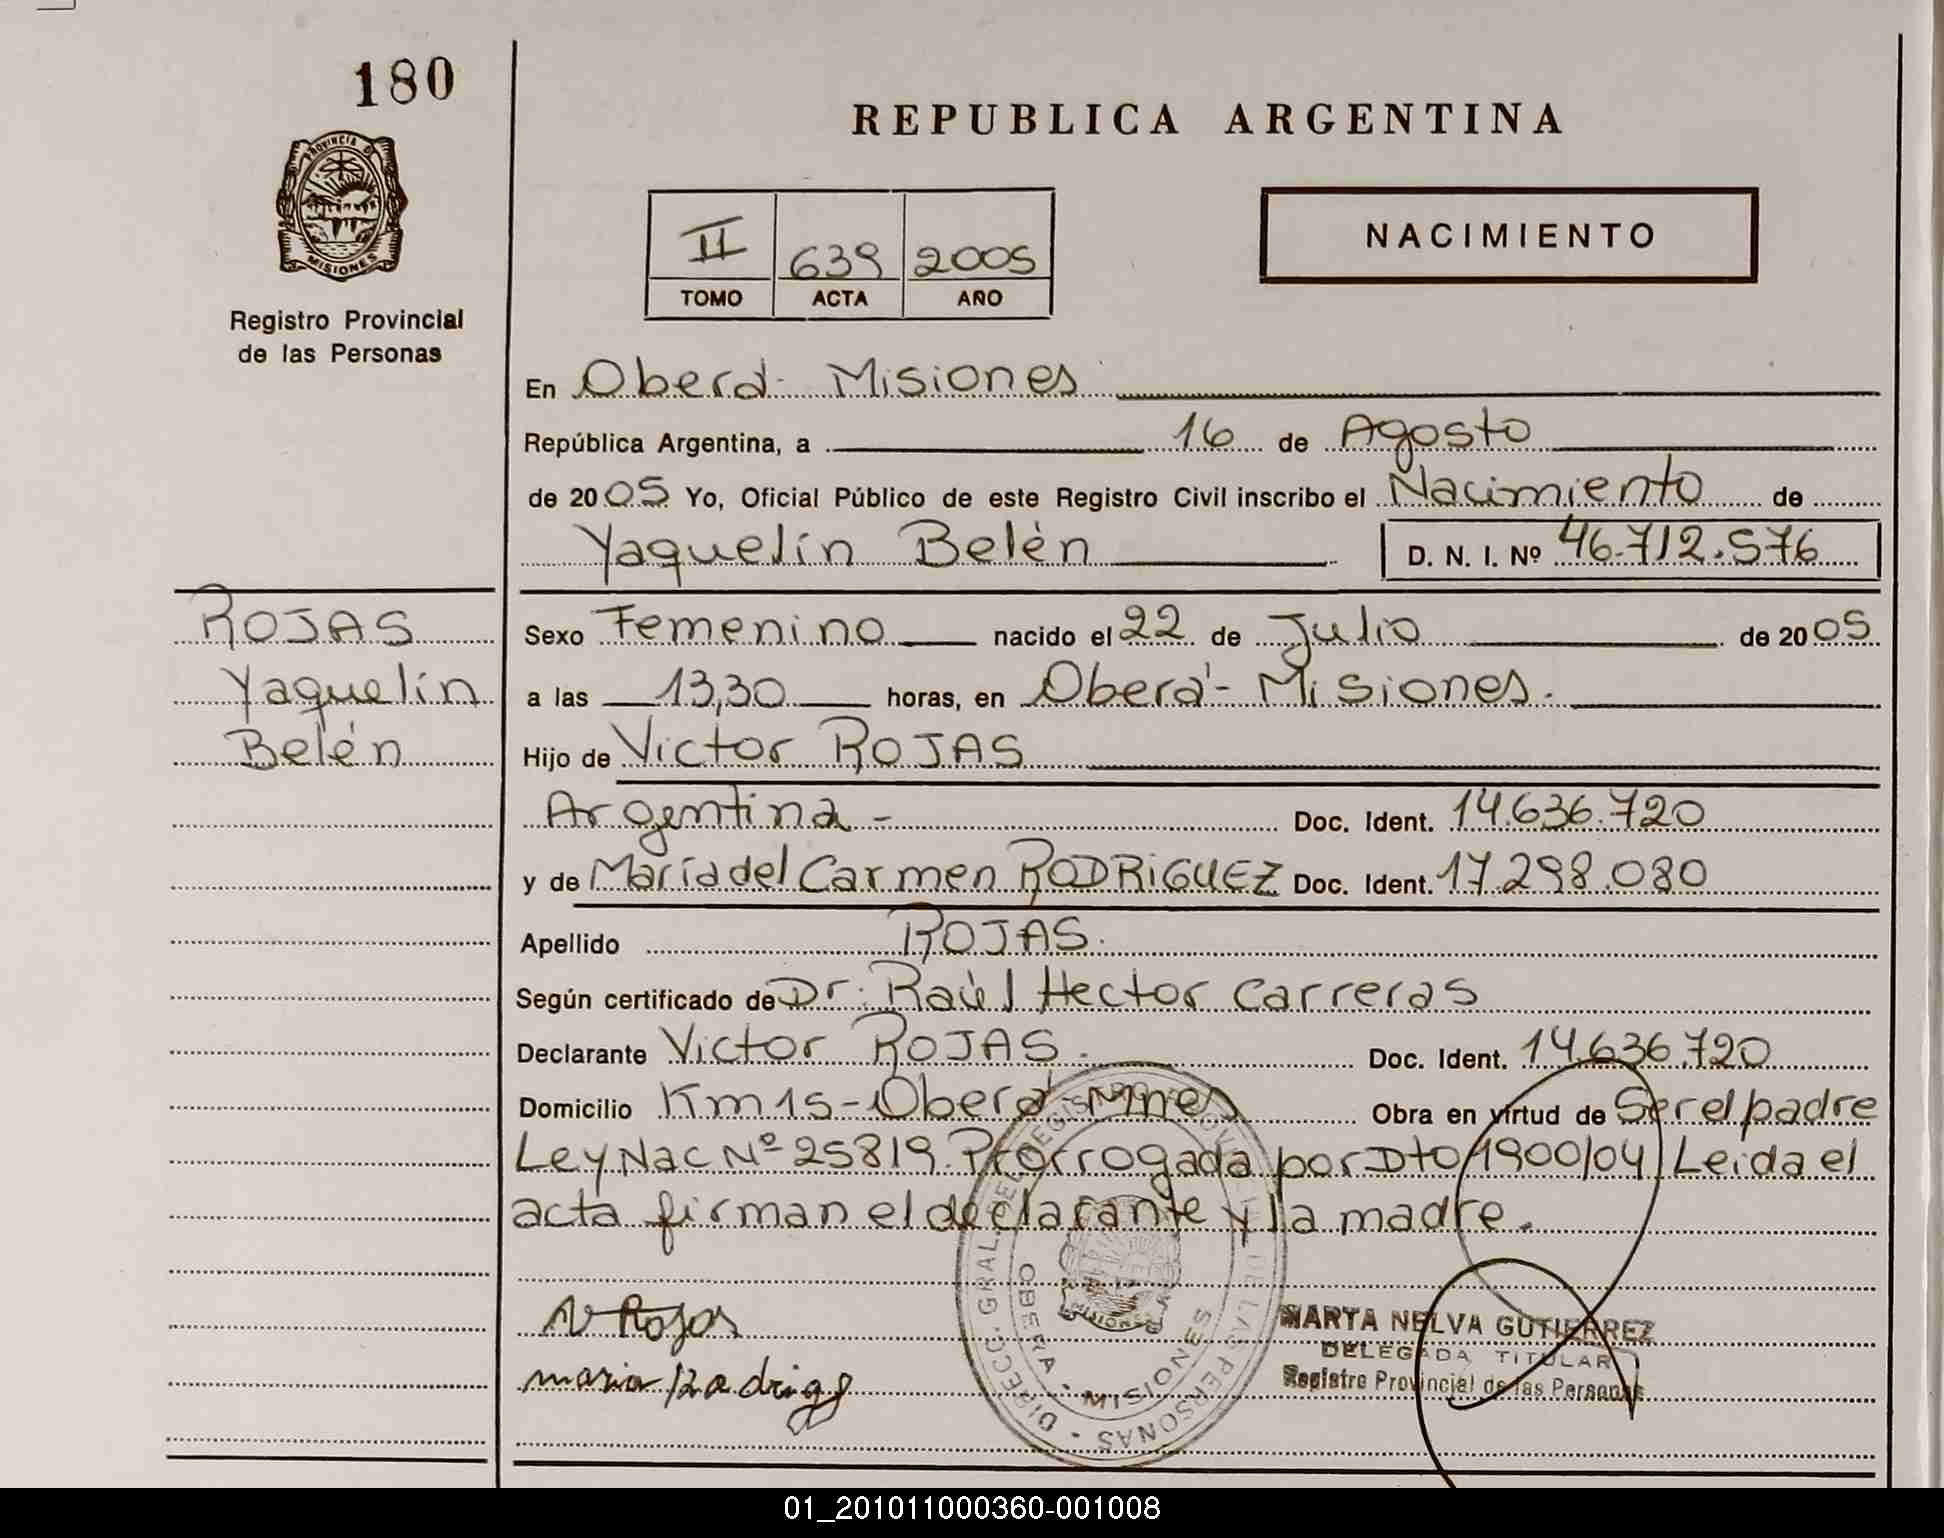 180
PROVINCIA D
MISIONES
Registro Provincial
de las Personas
REPUBLICA ARGENTINA
II 639 2005
TOMO ACTA AÑO
NACIMIENTO
En Oberá - Misiones
República Argentina, a 16 de Agosto
de 2005 Yo, Oficial Público de este Registro Civil inscribo el Nacimiento de
Yaquelín Belén D. N. I. Nº 46.712.576
ROJAS
Yaquelín
Belén
Sexo Femenino nacido el 22 de Julio de 2005
a las 13,30 horas, en Oberá - Misiones.
Hijo de Victor ROJAS
Argentina - Doc. Ident. 14.636.720
y de María del Carmen RODRIGUEZ Doc. Ident. 17.298.080
Apellido ROJAS.
Según certificado de Dr. Raúl Hector Carreras
Declarante Victor ROJAS. Doc. Ident. 14.636.720
Domicilio Km 15 - Oberá - Mnes Obra en virtud de Ser el padre
Ley Nac Nº 25819. Prorrogada por Dto 1900/04 Leida el
acta firman el declarante y la madre.
V Rojas
maria Rodrig
DIRECC. GRAL. DEL REGIS DE LAS PERSONAS
OBERA - MISIONES
MISIONES
MARTA NELVA GUTIERREZ
DELEGADA TITULAR
Registro Provincial de las Personas
01_201011000360-001008